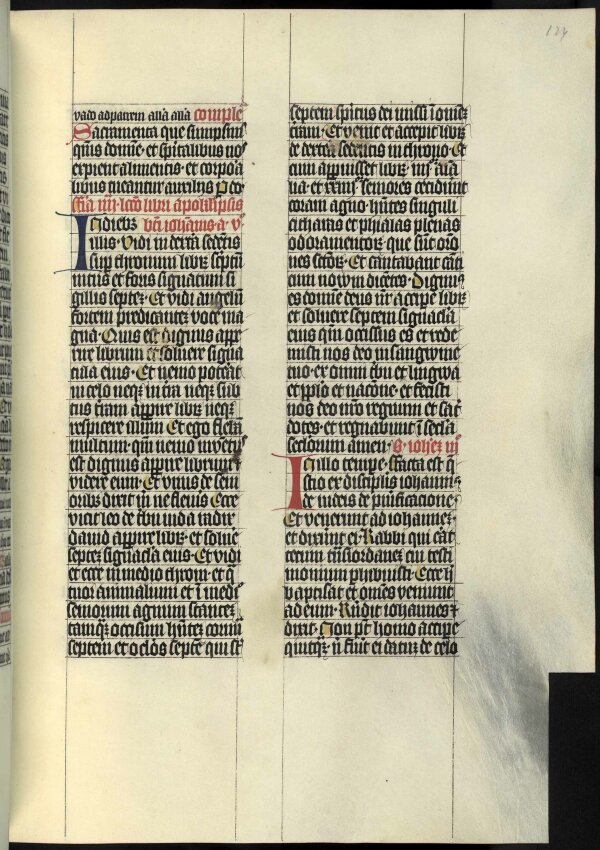 124
vado ad patrem alla alla comple
Sacramenta que sumpsim
quis domine et spiritalibus nos
expient alimentis et corpora
libus tueantur auxiliis
libri apokalipsis
In diebus bti iohannis a v
illis Vidi in dextra sedentis
sup thronum libr scptu
intus et foris signatum si
gillis septez Et vidi angelu
fortem predicantez voce ma
gna Quis est dignus appe
rire librum et soluere signa
cula eius Et nemo poterat
in celo neqz in tra neqz sub
tus tram apprire libr neqz
respicere illum Et ego flebā
multum qm nemo inventus
est dignus apprire librum
videre eum Et vnus de seni
oribz dixit mi ne fleuis Ecce
vicit leo de tbu iuda radix
dauid apprire libr et soluere
septez signacla eius Et vidi
et ecce in medio throni et q̄
tuor animalium et ī medio
seniorum agnum stantez
tamqz occisum hntez cornu
septem et oclos septe qui st
septem spiritus dei missi ī omnez
tram Et venit et accepit libr
de dextra sedentis in throno Et
cum apuisset libr iiii aīa
lia et xxiiii seniores ceciderūt
coram agno hntes singuli
citharas et phialas plenas
odoramentorz que sunt oro
nes sctorz Et cantabant canti
cum nouum dicetes Dignus
es domine deus nr accipe libr
et soluere septem signacla
eius qm occissus es et rede
misti nos deo in sangwine
tuo ex omni tbu et lingwa
et pplo et nacone et fecisti
nos deo nro regnum et sac
dotes et regnabunt ī secla
seclorum amen S iohez iii
In illo tempe Facta est q̄
stio ex disciplis iohannis
de iudeis de purificacione
Et venerunt ad iohannez
et dixerunt ei Rabbi qui erat
tecum tns iordanez cui testi
monium phibuisti Ecce h
baptisat et omes veniunt
ad eum Rndit iohannes et
dixit Non pt homo accipe
quicqz n fuit ei datuz de celo